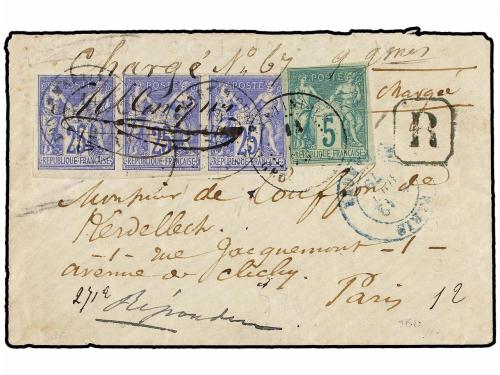 Chargé No 67 9 gmes
chargée
POSTE POSTE POSTE POSTE
25 25 25 5
REPUBLIQUE FRANÇAISE REPUBLIQUE FRANÇAISE REPUBLIQUE FRANÇAISE REPUBLIQUE FRANÇAISE
R
PARIS
Monsieur de Couffon de
Kerdellech
1 rue Jacquemont - 1 -
avenue de Clichy
Paris
2712 Répondu 12